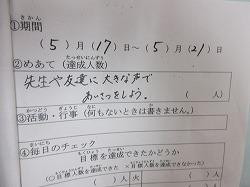 きかん
①期間
(5)月(17)日～(5)月(21)日
たっせいにんずう
②めあて（達成人数）
先生や友達に大きな声で
あいさつをしよう。
（　　人）
かつどう ぎょうじ なに か
③活動・行事（何もないときは書きません。）
まいにち
④毎日のチェック
もくひょう たっせい
目標を達成できたかどうか
（○目標を達成できた ×目標を達成できなかった）
人）火
人）